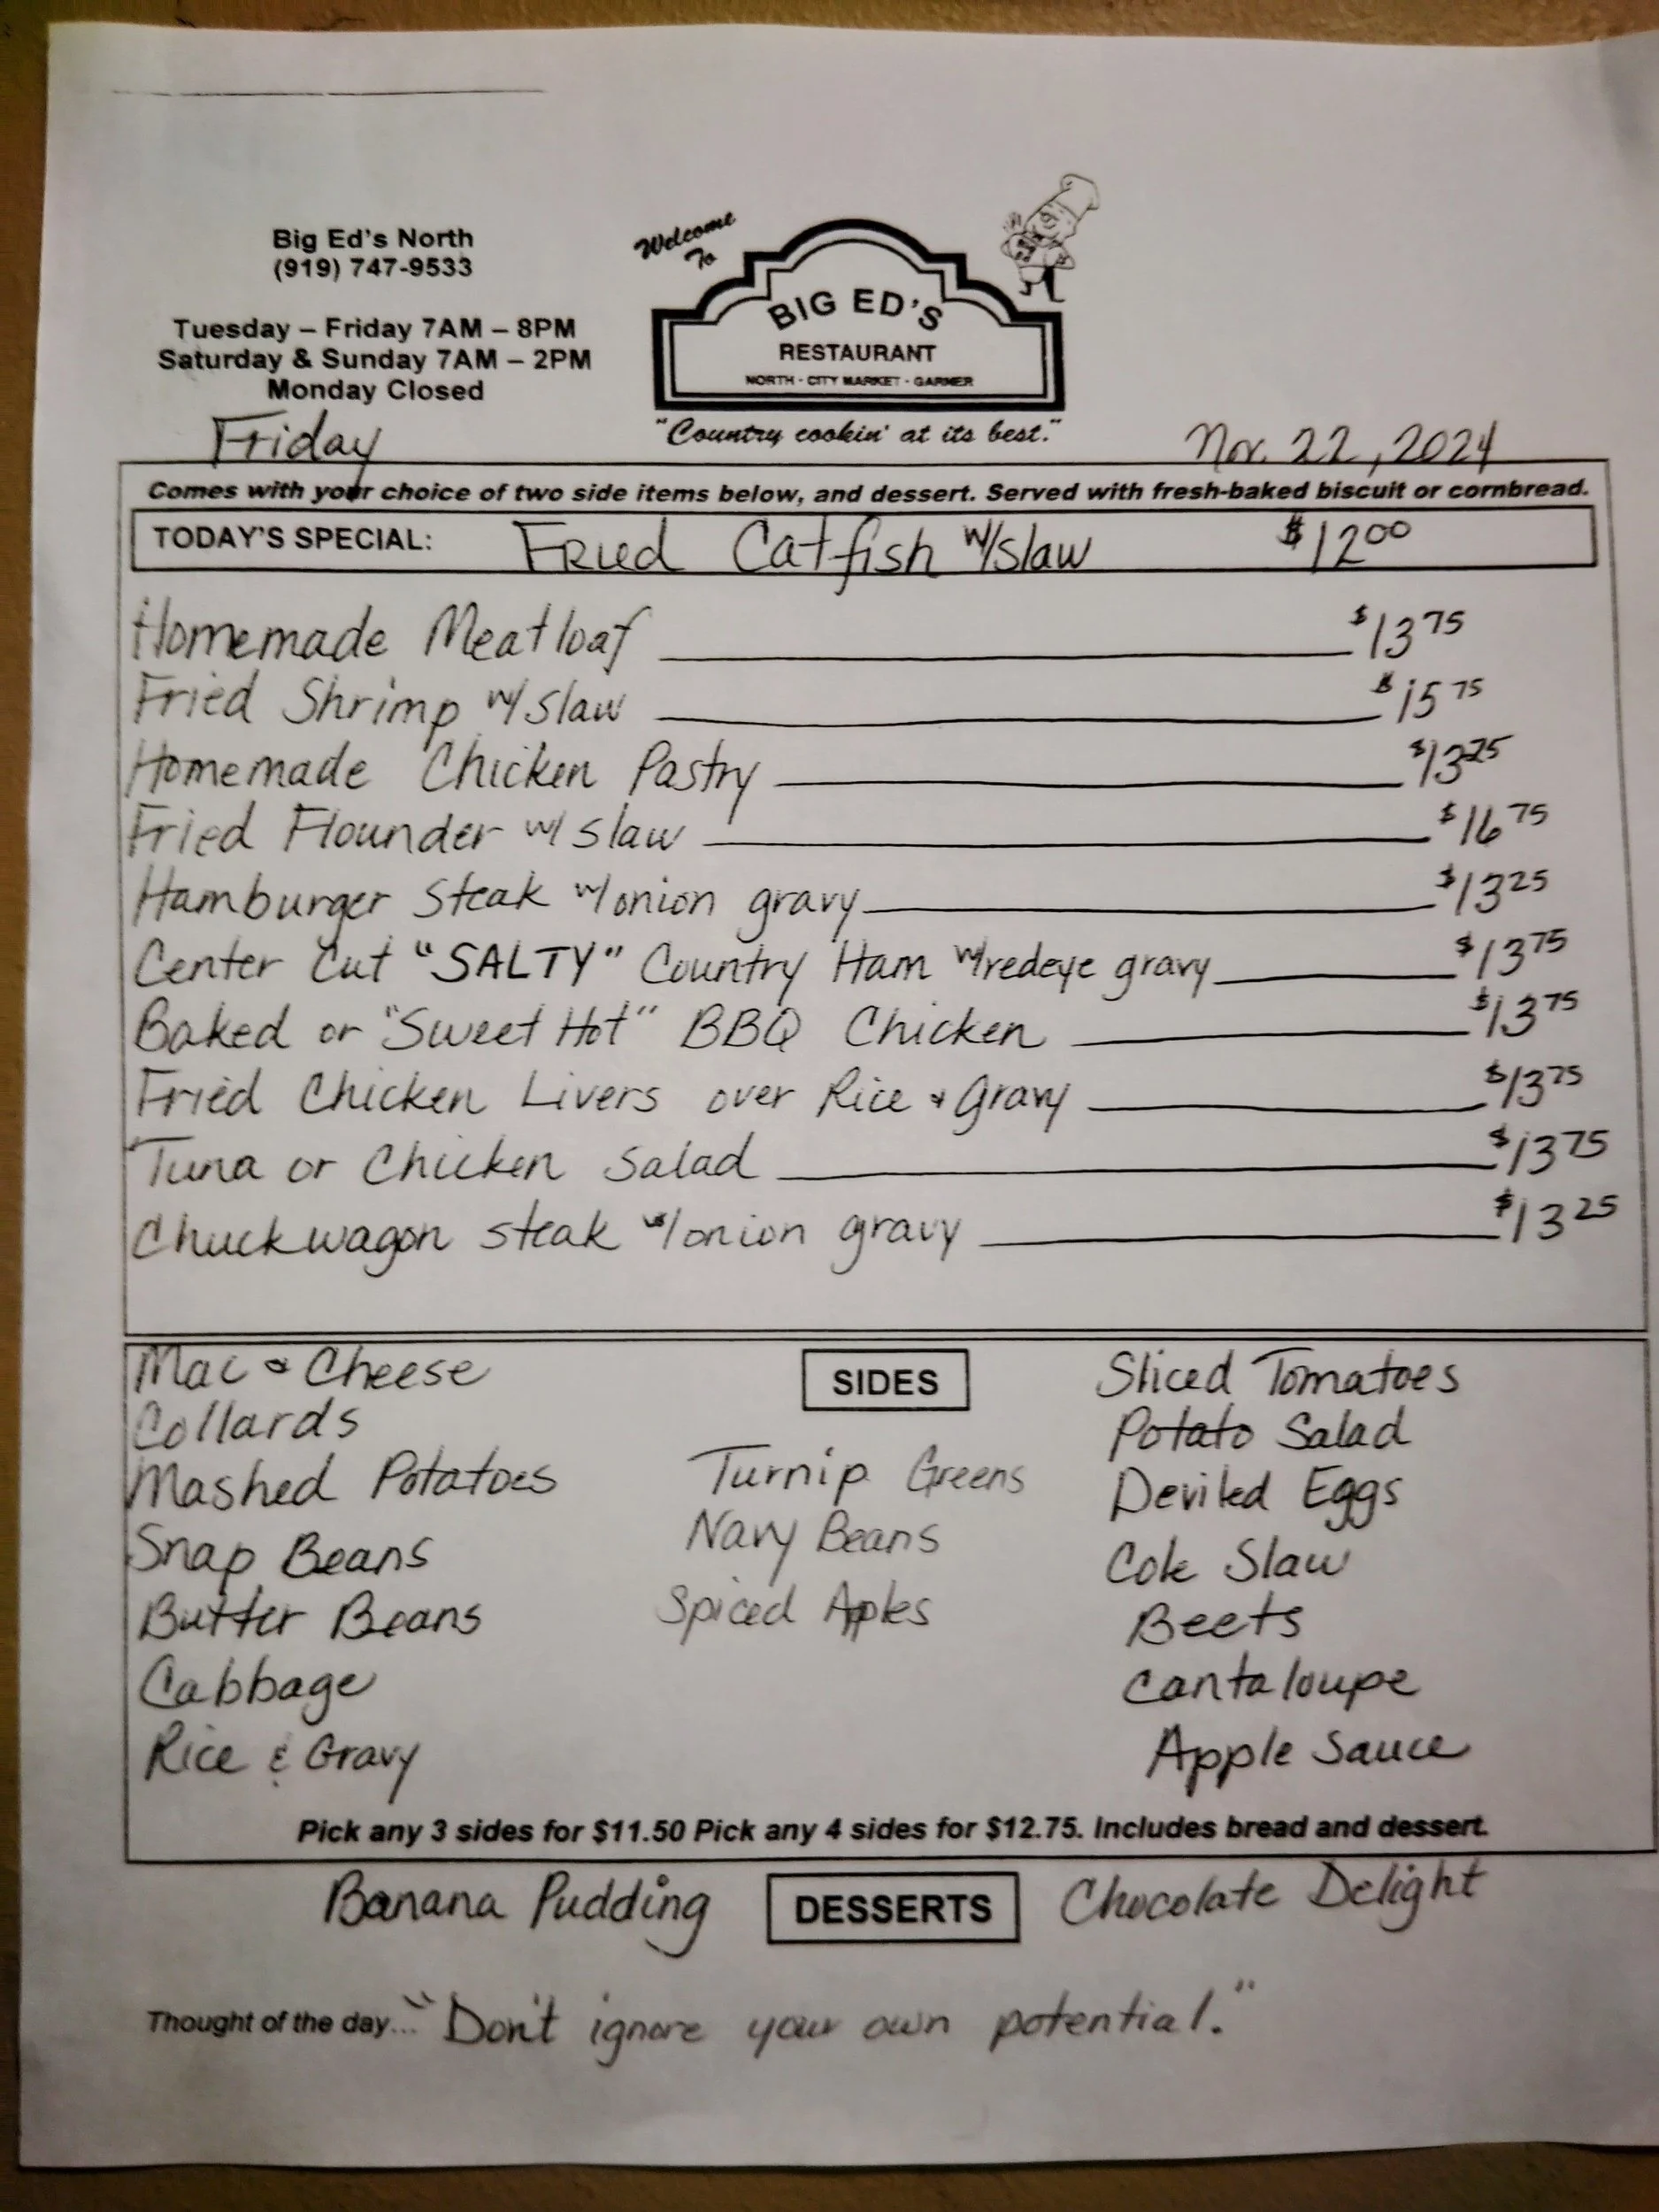 Big Ed's North
(919) 747-9533
Tuesday – Friday 7AM – 8PM
Saturday & Sunday 7AM – 2PM
Monday Closed
Welcome
To
BIG ED'S
RESTAURANT
NORTH - CITY MARKET - GARNER
"Country cookin' at its best."
Friday
Nov. 22, 2024
Comes with your choice of two side items below, and dessert. Served with fresh-baked biscuit or cornbread.
TODAY'S SPECIAL: Fried Catfish w/slaw $12.00
Homemade Meatloaf $13.75
Fried Shrimp w/ Slaw $15.75
Homemade Chicken Pastry $13.25
Fried Flounder w/ slaw $16.75
Hamburger Steak w/ onion gravy $13.25
Center Cut "SALTY" Country Ham w/redeye gravy $13.75
Baked or "Sweet Hot" BBQ Chicken $13.75
Fried Chicken Livers over Rice & Gravy $13.75
Tuna or Chicken Salad $13.75
Chuckwagon steak w/ onion gravy $13.25
SIDES
Mac & Cheese
Collards
Mashed Potatoes
Snap Beans
Butter Beans
Cabbage
Rice & Gravy
Turnip Greens
Navy Beans
Spiced Apples
Sliced Tomatoes
Potato Salad
Deviled Eggs
Cole Slaw
Beets
Cantaloupe
Apple Sauce
Pick any 3 sides for $11.50 Pick any 4 sides for $12.75. Includes bread and dessert.
Banana Pudding DESSERTS Chocolate Delight
Thought of the day... "Don't ignore your own potential."